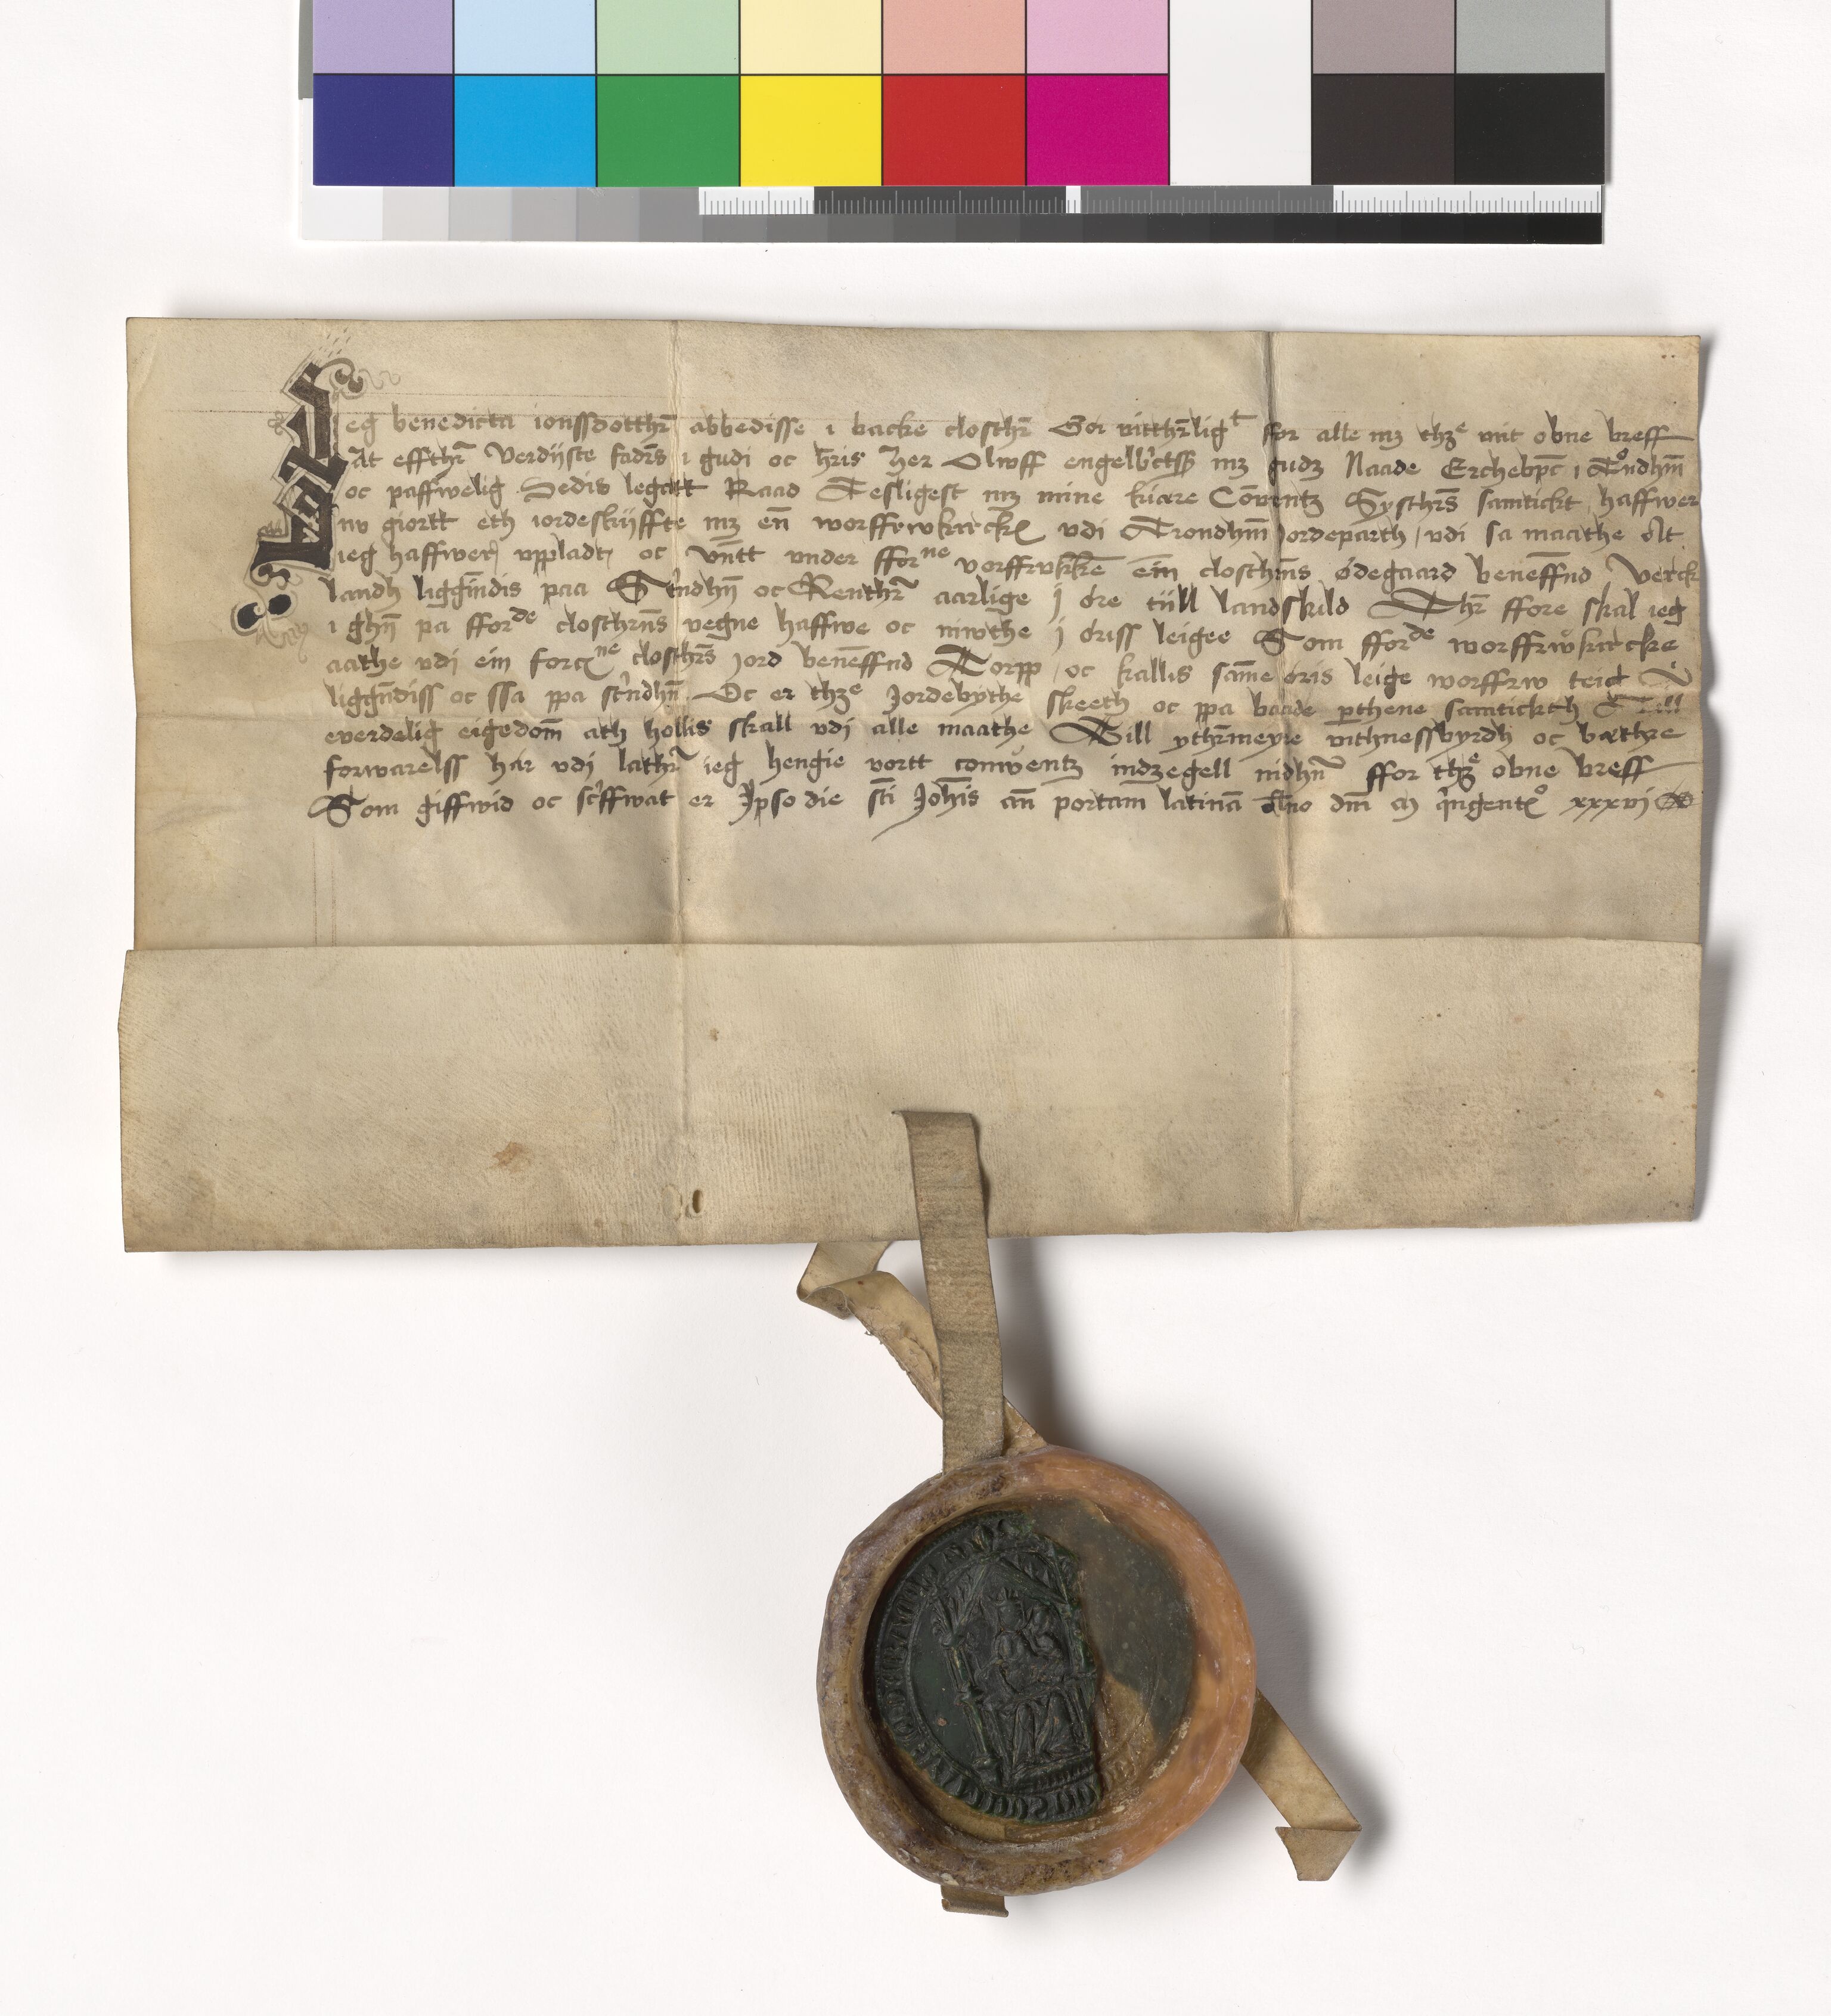 Jeg benedicta ionssdotthr̄ abbedisse i backe closthr̄ Gør vitthr̄ligt for alle mꝫ thꝫe mit obne breff
At effthr̄ Verdijste fadr̄s i gudi oc hr̄is her Olwff engelbr̄ctss mꝫ gudꝫ Naade Erchebpc̄ i Tro̊ndhm̄
oc paffwelig Sedis legatt Raad Tesligest mꝫ mine kiære Cōventꝫ Systhr̄s samtickt haffwer
nw giortt eth iordeskijffte mꝫ en̄ worffrwkircke vdi Trondhm̄ Jordeparth vdi sa maathe At
ieg haffwer vppladt oc vn̄tt vnder fforne vorffrwkirke ein closthrn̄s ødegaard beneff̄nd Verck
landh liggīndis paa Strindhn̄ oc Renthr̄ aarlige j øre tiill landskild Thr̄ ffore skal ieg
i ghn̄ pa fforde closthrn̄s vegne haffwe oc niwthe j øriss leigee Som fforde worffrwkircke
aathe vdi ein forne closthr̄s jord beneff̄nd Torpp oc kallis sam̄e øris leige worffrw teig
liggn̄diss oc ssa ppa strindhn̄ Oc er thꝫe Jordebythe skeeth oc ppa baade perthene samtickth Till
everdelig eigedom̄ ath hollis skall vdj alle maathe Till ythr̄meyre vithnessbyrdh oc bæthre
forwarelss har vdj lathr̄ ieg hengie vortt conventꝫ indzegell nidhn̄ ffor thꝫe obne breff
Som giffwid oc scriffwat er Jpso die sti Johīs an̄ portam latinā Ano dm̄ m qingento xxxvj